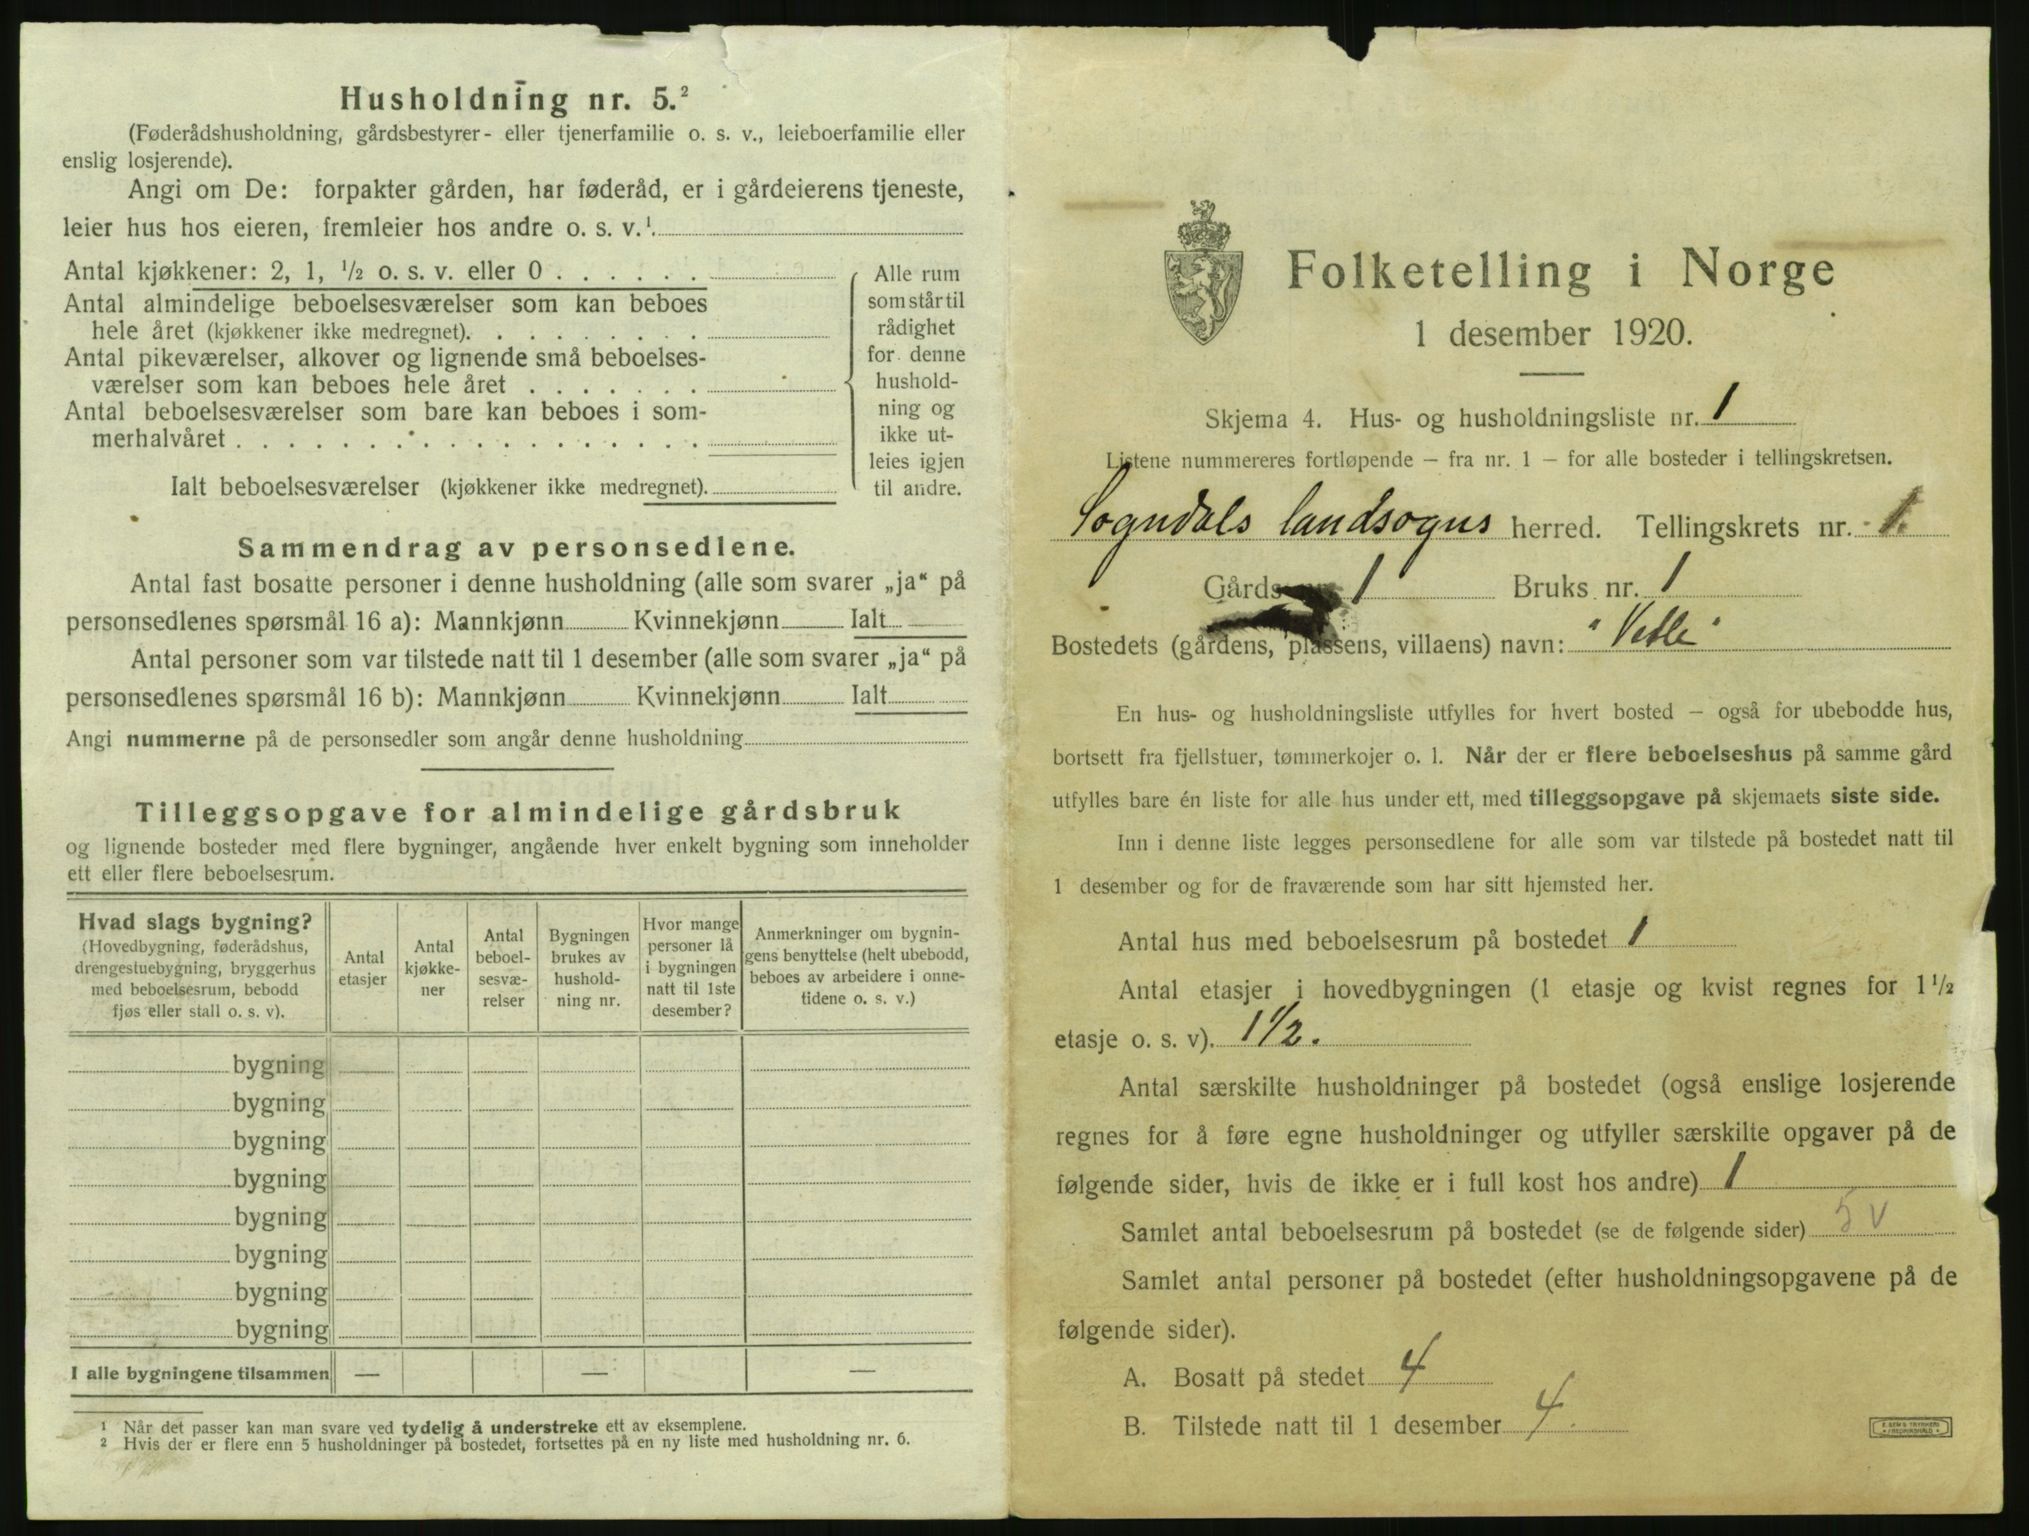 Husholdning nr. 5.²
(Føderådshusholdning, gårdsbestyrer- eller tjenerfamilie o. s. v., leieboerfamilie eller
enslig losjerende).
Angi om De: forpakter gården, har føderåd, er i gårdeierens tjeneste,
leier hus hos eieren, fremleier hos andre o. s. v.¹.
Antal kjøkkener: 2, 1, ½ o. s. v. eller 0 . . . . . .
Antal almindelige beboelsesværelser som kan beboes
hele året (kjøkkener ikke medregnet). . . . . . . . .
Antal pikeværelser, alkover og lignende små beboelses-
værelser som kan beboes hele året . . . . . . .
Antal beboelsesværelser som bare kan beboes i som-
merhalvåret . . . . . . . . . . . . . . . . . .
Ialt beboelsesværelser (kjøkkener ikke medregnet).
Alle rum
som står til
rådighet
for denne
hushold-
ning og
ikke ut-
leies igjen
til andre.
Sammendrag av personsedlene.
Antal fast bosatte personer i denne husholdning (alle som svarer „ja“ på
personsedlenes spørsmål 16 a): Mannkjønn Kvinnekjønn Ialt
Antal personer som var tilstede natt til 1 desember (alle som svarer „ja“ på
personsedlenes spørsmål 16 b): Mannkjønn Kvinnekjønn Ialt
Angi nummerne på de personsedler som angår denne husholdning
Tilleggsopgave for almindelige gårdsbruk
og lignende bosteder med flere bygninger, angående hver enkelt bygning som inneholder
ett eller flere beboelsesrum.
Hvad slags bygning?
(Hovedbygning, føderådshus,
drengestuebygning, bryggerhus
med beboelsesrum, bebodd
fjøs eller stall o. s. v).
Antal
etasjer
Antal
kjøkke-
ner
Antal
beboel-
sesvæ-
relser
Bygningen
brukes av
hushold-
ning nr.
Hvor mange
personer lå
i bygningen
natt til 1ste
desember?
Anmerkninger om bygnin-
gens benyttelse (helt ubebodd,
beboes av arbeidere i onne-
tidene o. s. v.)
bygning
bygning
bygning
bygning
bygning
bygning
bygning
bygning
I alle bygningene tilsammen — — —
¹ Når det passer kan man svare ved tydelig å understreke ett av eksemplene.
² Hvis der er flere enn 5 husholdninger på bostedet, fortsettes på en ny liste med husholdning nr. 6.
Folketelling i Norge
1 desember 1920.
Skjema 4. Hus- og husholdningsliste nr. 1
Listene nummereres fortløpende – fra nr. 1 – for alle bosteder i tellingskretsen.
Sogndals landsogns herred. Tellingskrets nr. 1.
Gårds 1 Bruks nr. 1
Bostedets (gårdens, plassens, villaens) navn: "Vetle"
En hus- og husholdningsliste utfylles for hvert bosted – også for ubebodde hus,
bortsett fra fjellstuer, tømmerkojer o. l. Når der er flere beboelseshus på samme gård
utfylles bare én liste for alle hus under ett, med tilleggsopgave på skjemaets siste side.
Inn i denne liste legges personsedlene for alle som var tilstede på bostedet natt til
1 desember og for de fraværende som har sitt hjemsted her.
Antal hus med beboelsesrum på bostedet 1
Antal etasjer i hovedbygningen (1 etasje og kvist regnes for 1½
etasje o. s. v). 1 1/2.
Antal særskilte husholdninger på bostedet (også enslige losjerende
regnes for å føre egne husholdninger og utfyller særskilte opgaver på de
følgende sider, hvis de ikke er i full kost hos andre) 1
Samlet antal beboelsesrum på bostedet (se de følgende sider) 5 v
Samlet antal personer på bostedet (efter husholdningsopgavene på de
følgende sider).
A. Bosatt på stedet 4
B. Tilstede natt til 1 desember 4.
E. SEMS TRYKKERI
FREDRIKSHALD